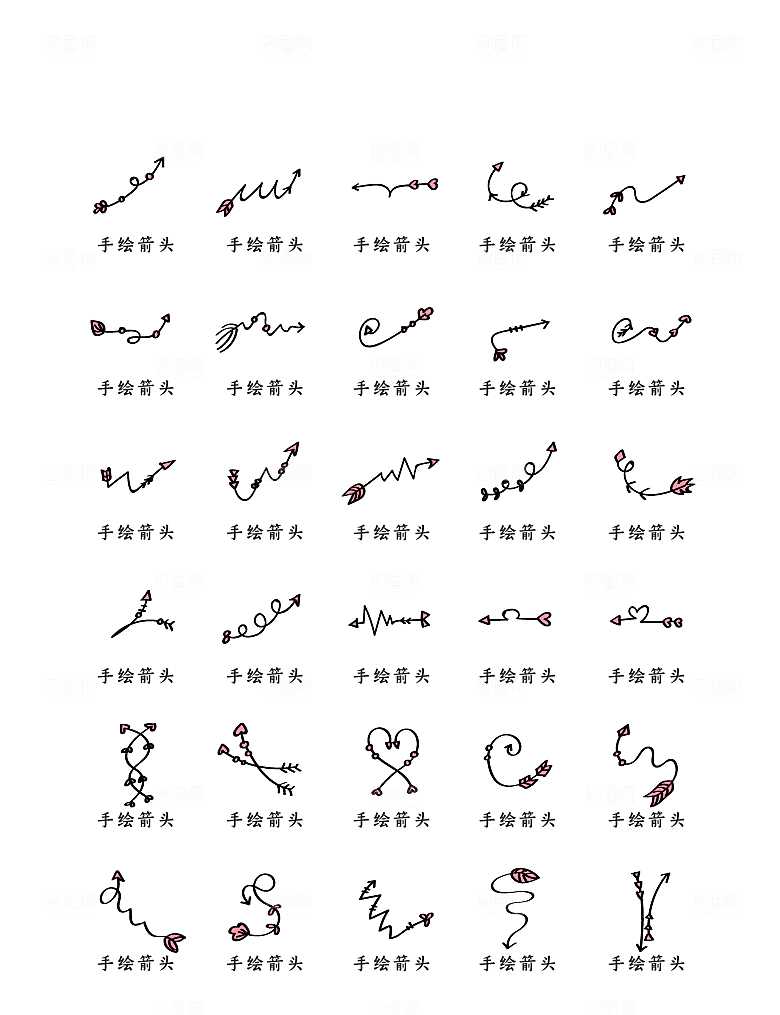 手绘箭头 手绘箭头 手绘箭头 手绘箭头 手绘箭头
手绘箭头 手绘箭头 手绘箭头 手绘箭头 手绘箭头
手绘箭头 手绘箭头 手绘箭头 手绘箭头 手绘箭头
手绘箭头 手绘箭头 手绘箭头 手绘箭头 手绘箭头
手绘箭头 手绘箭头 手绘箭头 手绘箭头 手绘箭头
手绘箭头 手绘箭头 手绘箭头 手绘箭头 手绘箭头